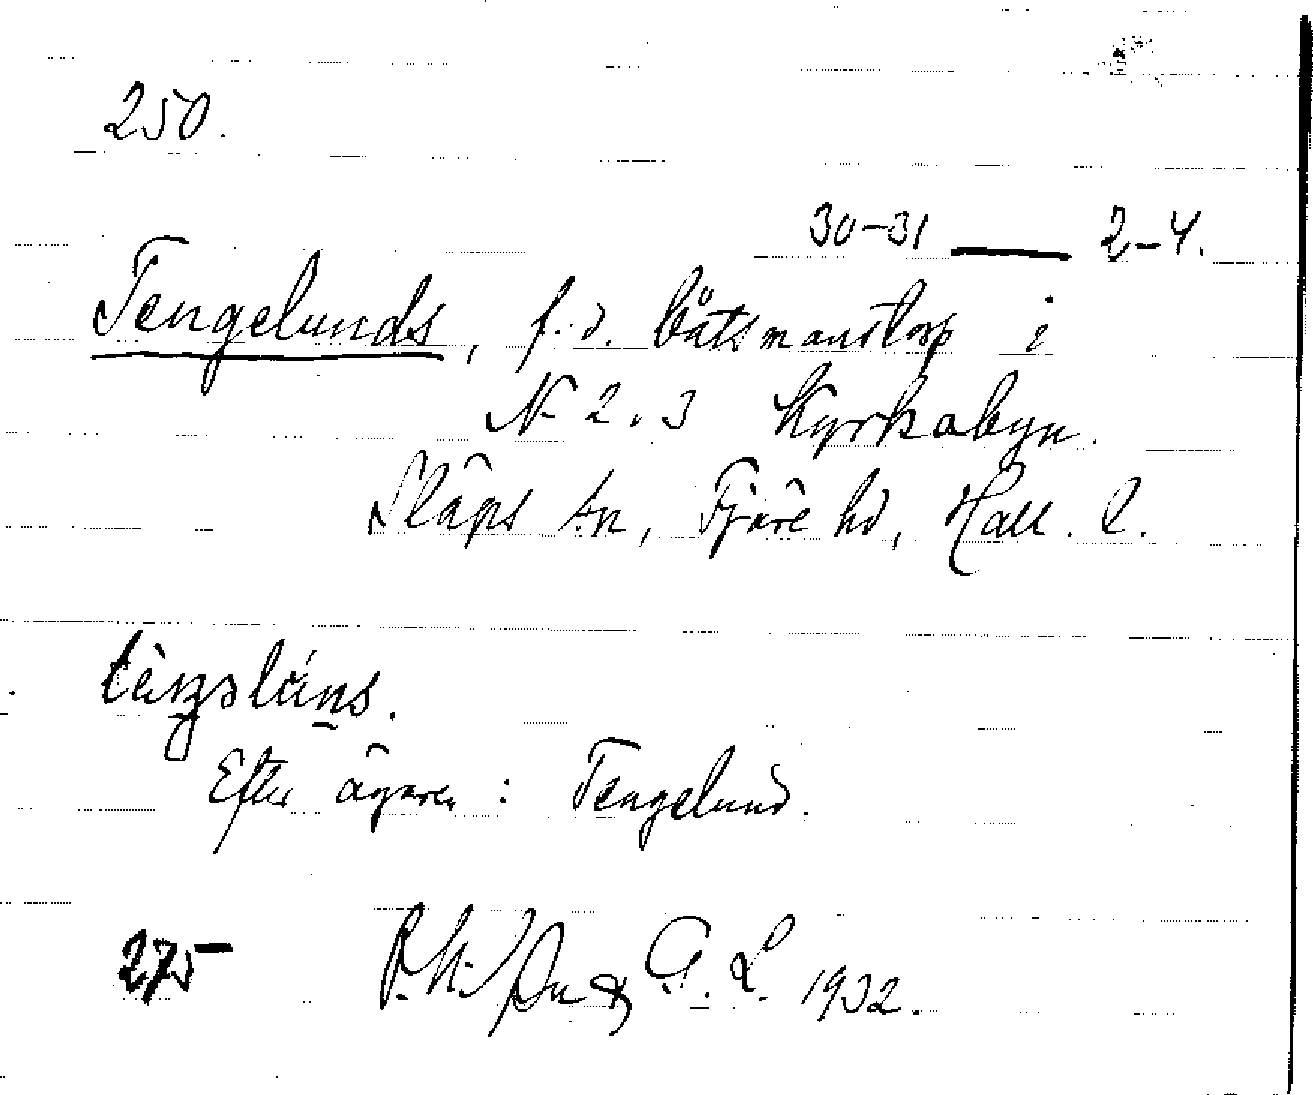 250.
30-31 — 2-4.
Tengelunds, f.d. båtsmanstorp i
N 2.3 Kyrkabyn.
Släps sn, Fjäre hd, Hall. l.
Efter ägaren: Tengelund.
275 G. L. 1932.